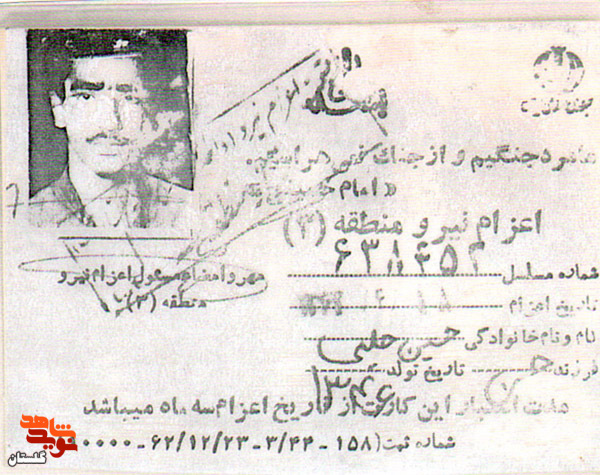 بسمه تعالی
ما مرد جنگیم و از جنگ نمی‌هراسیم.
«امام خمینی»
اعزام نیرو منطقه (۳)
شماره مسلسل
تاریخ اعزام
نام و نام خانوادگی حسین حلبی
فرزند حسن تاریخ تولد ۱۳۴۶
مدت اعتبار این کارت از تاریخ اعزام سه ماه میباشد
شماره ثبت (۱۵۸-۳/۴۴-۶۲/۱۲/۲۳-
مهر و امضاء مسئول اعزام نیرو
منطقه (۳)
نوید شاهد
گلستان